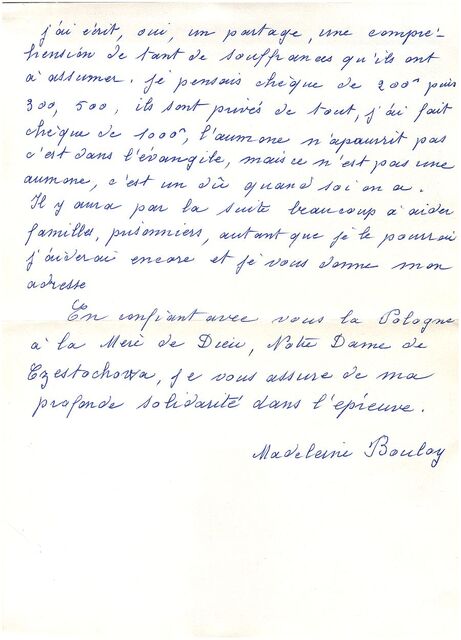 j'ai écrit, oui, un partage, une compré-
hension de tant de souffrances qu'ils ont
à assumer. Je pensais chèque de 200ⁿ puis
300, 500, ils sont privés de tout, j'ai fait
chèque de 1000ⁿ, l'aumone n'apauvrit pas
c'est dans l'évangile, mais ce n'est pas une
aumone, c'est un dû quand soi on a.
Il y aura par la suite beaucoup à aider
familles, prisonniers, autant que je le pourrai
j'aiderai encore et je vous donne mon
adresse
En confiant avec vous la Pologne
à la Mère de Dieu, Notre Dame de
Czestochowa, je vous assure de ma
profonde solidarité dans l'epreuve.
Madeleine Boulay